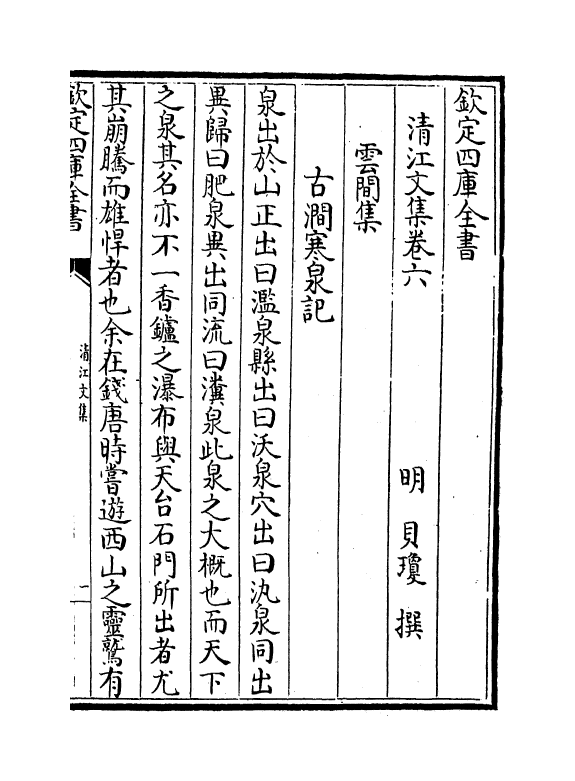 欽定四庫全書
清江文集卷六
明 貝瓊 撰
雲間集
古澗寒泉記
泉出於山正出曰濫泉縣出曰沃泉穴出曰氿泉同出
異歸曰肥泉異出同流曰瀵泉此泉之大概也而天下
之泉其名亦不一香鑪之瀑布與天台石門所出者尤
其崩騰而雄悍者也余在錢唐時嘗遊西山之靈鷲有
欽定四庫全書
清江文集
一